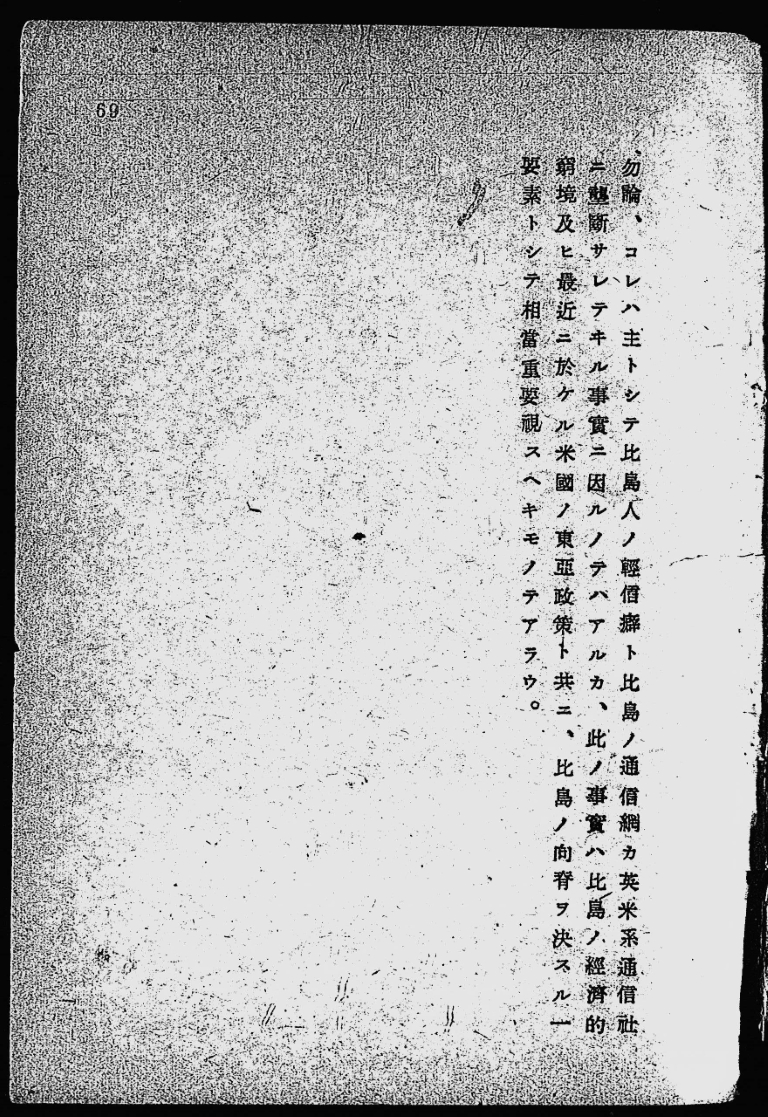 勿論、コレハ主トシテ比島人ノ輕信癖ト比島ノ通信網カ英米系通信社
ニ壟斷サレテヰル事實ニ因ルノテハアルカ、此ノ事實ハ比島ノ經濟的
窮境及ヒ最近ニ於ケル米國ノ東亞政策ト共ニ、比島ノ向脊ヲ決スル一
要素トシテ相當重要視スヘキモノテアラウ。
69